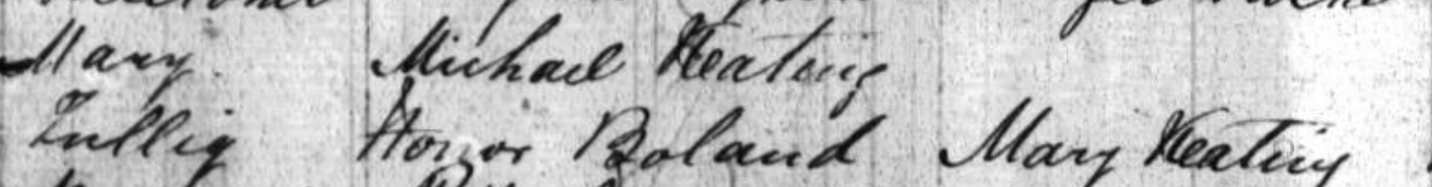 Mary Michael Keating
Tullig Honor Boland Mary Keating